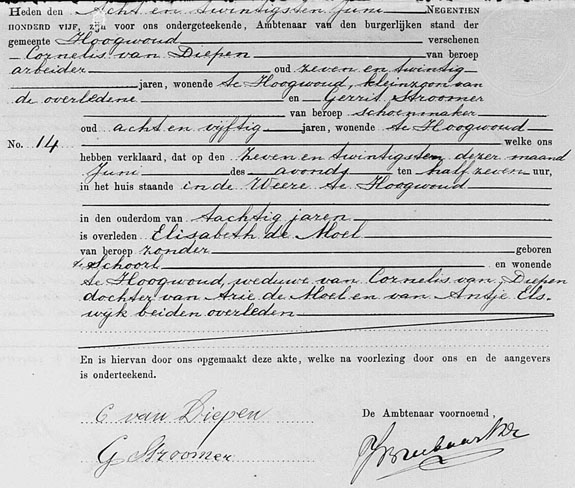 Heden den Acht en twintigsten Juni NEGENTIEN
HONDERD VIJF, zijn voor ons ondergeteekende, Ambtenaar van den burgerlijken stand der
gemeente Hoogwoud verschenen
Cornelis van Diepen van beroep
arbeider oud zeven en twintig
jaren, wonende te Hoogwoud, kleinzoon van
de overledene en Gerrit Stroomer
van beroep schoenmaker
oud acht en vijftig jaren, wonende te Hoogwoud
No. 14 welke ons
hebben verklaard, dat op den zeven en twintigsten dezer maand
Juni des avonds ten half zeven uur,
in het huis staande in de Weere te Hoogwoud
in den ouderdom van tachtig jaren
is overleden Elisabeth de Moel
van beroep zonder geboren
te Schoorl en wonende
te Hoogwoud, weduwe van Cornelis van Diepen
dochter van Arie de Moel en van Antje Els-
wijk beiden overleden
En is hiervan door ons opgemaakt deze akte, welke na voorlezing door ons en de aangevers
is onderteekend.
C van Diepen
De Ambtenaar voornoemd,
G Stroomer